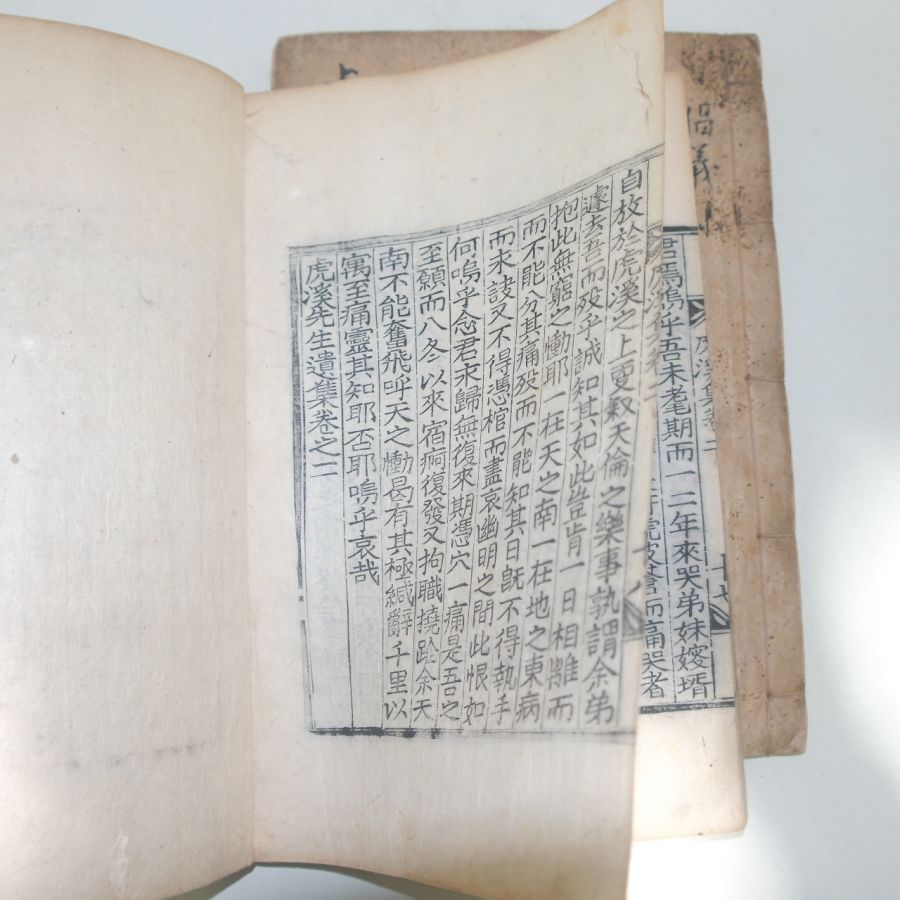 自放於虎溪之上更敍天倫之樂事孰謂余弟
遽去吾而歿乎誠知其如此豈肯一日相離而
抱此無窮之慟耶一在天之南一在地之東病
而不能分其痛歿而不能知其日旣不得執手
而永訣又不得憑棺而盡哀幽明之間此恨如
何嗚乎念君永歸無復來期憑穴一痛是吾之
至願而八冬以來宿痾復發又拘職撓跧余天
南不能奮飛呼天之慟曷有其極緘辭千里以
寓至痛靈其知耶否耶嗚乎哀哉
虎溪先生遺集卷之二
君焉嗚乎吾未耄期而一二年來哭弟妹嫂壻
而痛哭者
虎溪集卷二
十七
倡義